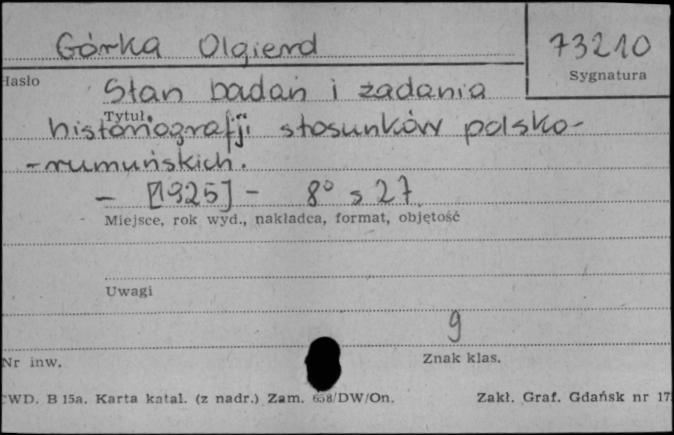 Górka Olgierd
73210
Hasło
Sygnatura
Stan badań i zadania
Tytuł
historiografji stosunków polsko-
-rumuńskich.
- [1925] - 8° s 27.
Miejsce, rok wyd., nakładca, format, objętość
Uwagi
9
Nr inw.
Znak klas.
CWD. B 15a. Karta katal. (z nadr.) Zam. 658/DW/On.
Zakł. Graf. Gdańsk nr 17